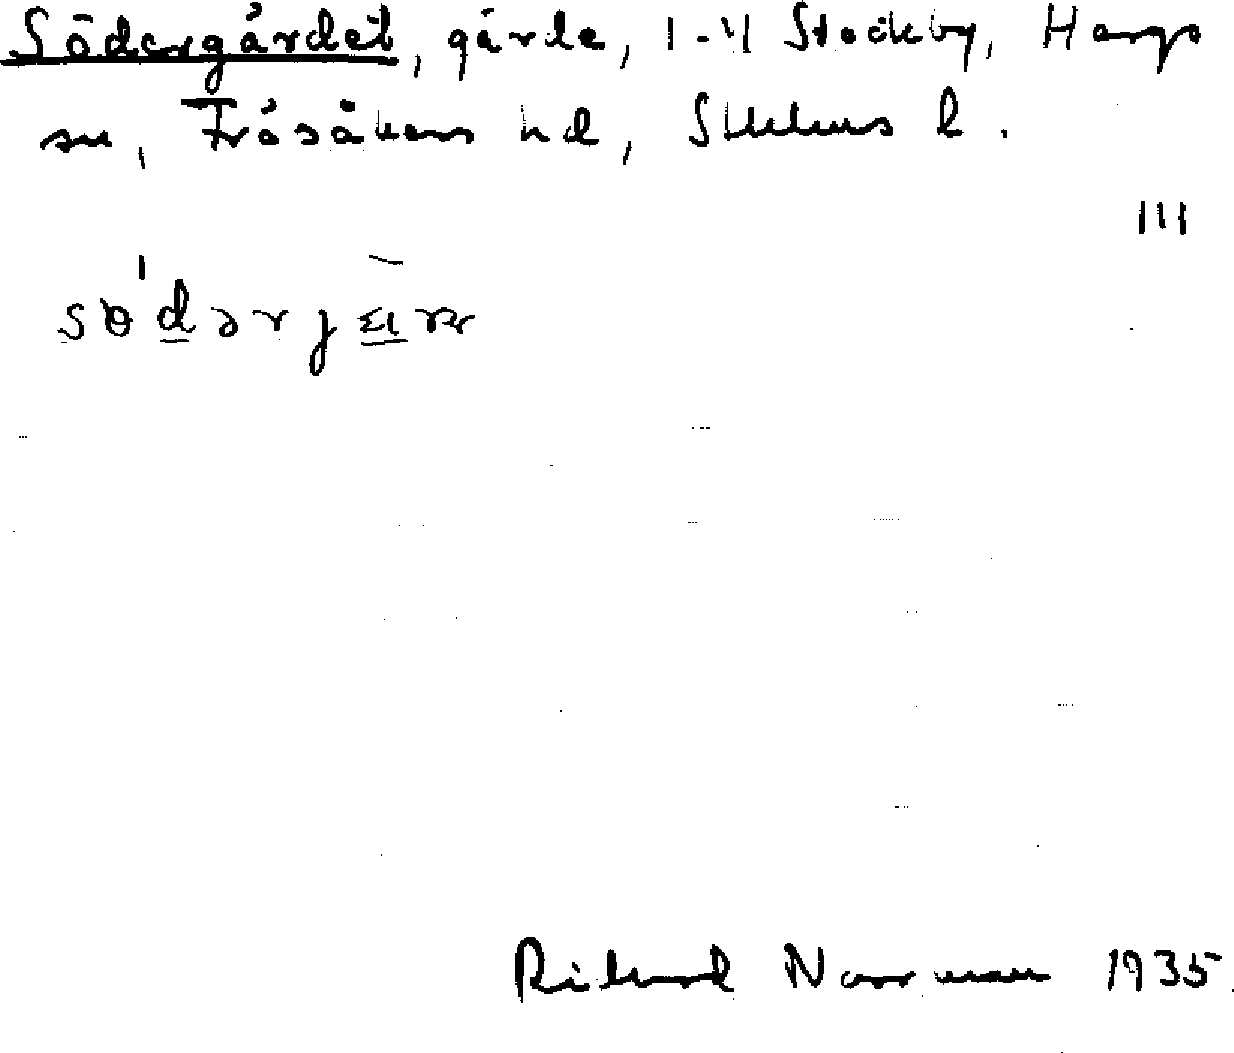 Södergärdet, gärde, 1-4 Stockby, Hargs
sn, Frösåkers hd, Sthlms l.
III
sɵ'dərjæ̅ræ
Richard Norrman 1935